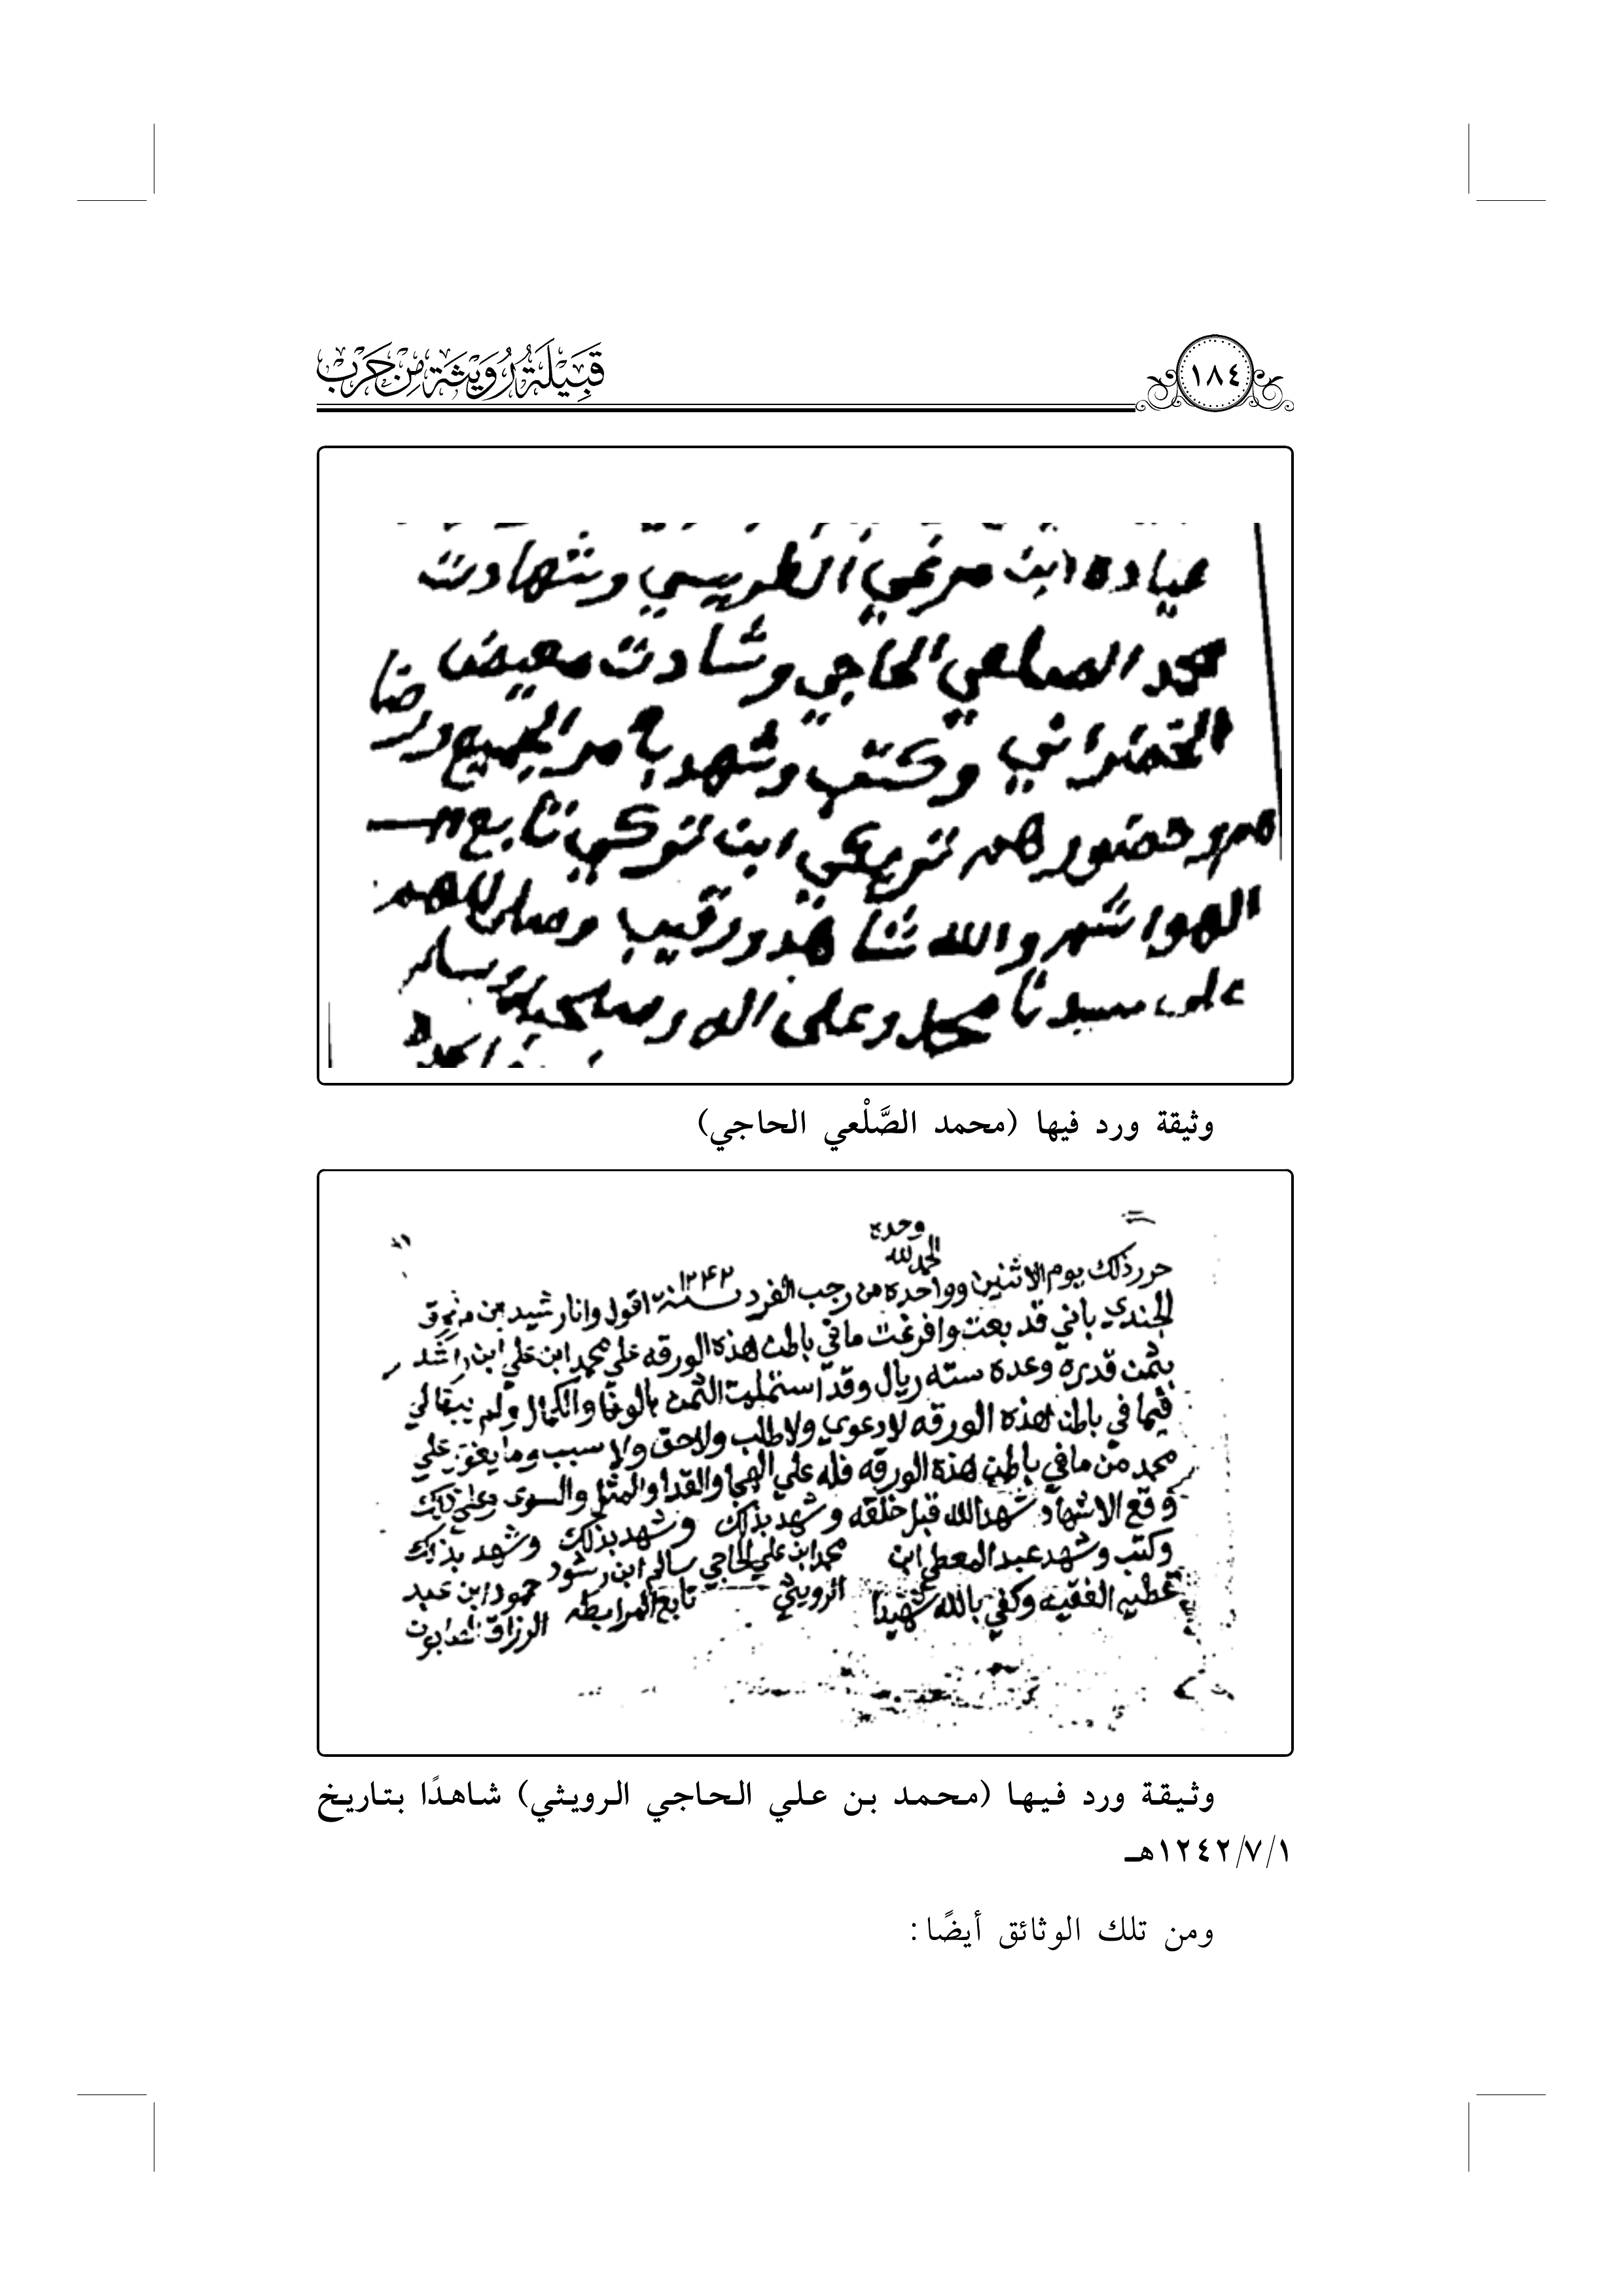 قَبِيلَةُ رُوَيْثَة مِنْ حَرْب
١٨٤
عياده ابن مرغي الطريسي وشهادت
محمد الصلعي الحاجي وشادت معيض
الخضراني وكتب وشهد بامر الجميع ورضا
هم وحضورهم تريكي ابن تركي تابع
الهواشم والله شاهد ورقيب وصلى اللهم
على سيدنا محمد وعلى اله وصحبه وسلم
وحده
الحمد لله
حرر ذلك يوم الاثنين وواحده من رجب الفرد سنة ١٢٤٢ اقول وانا رشيد بن مرزوق
الجندي باني قد بعت وافرغت ما في باطن هذه الورقه علي محمد ابن علي ابن راشد
بثمن قدره وعدة سته ريال وقد استملت الثمن بالوفا والكمال ولم يبقا لي
فيما في باطن هذه الورقه لا دعوي ولا طلب ولا حق ولا سبب وما يغوز علي
محمد من ما في باطن هذه الورقه فله علي الهجا والفدا والمثل والسوى وعلي ذلك
وقع الاشهاد شهد الله قبل خلقه وشهد بذلك وشهد بذلك وشهد بذلك
وكتب وشهد عبد المعطي ابن محمد ابن علي الحاجي سالم ابن رشود حمود ابن عبد
عطيه الفقيه وكفي بالله شهيدا الرويثي تابع المرابطه الرزاق
وثيقة ورد فيها (محمد الصَّلْعي الحاجي)
وثيقة ورد فيها (محمد بن علي الحاجي الرويثي) شاهدًا بتاريخ
١٢٤٢/٧/١هـ
ومن تلك الوثائق أيضًا: